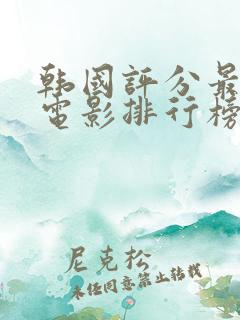 韩國評分最
電影排行榜
尼克松
未经同意禁止转载